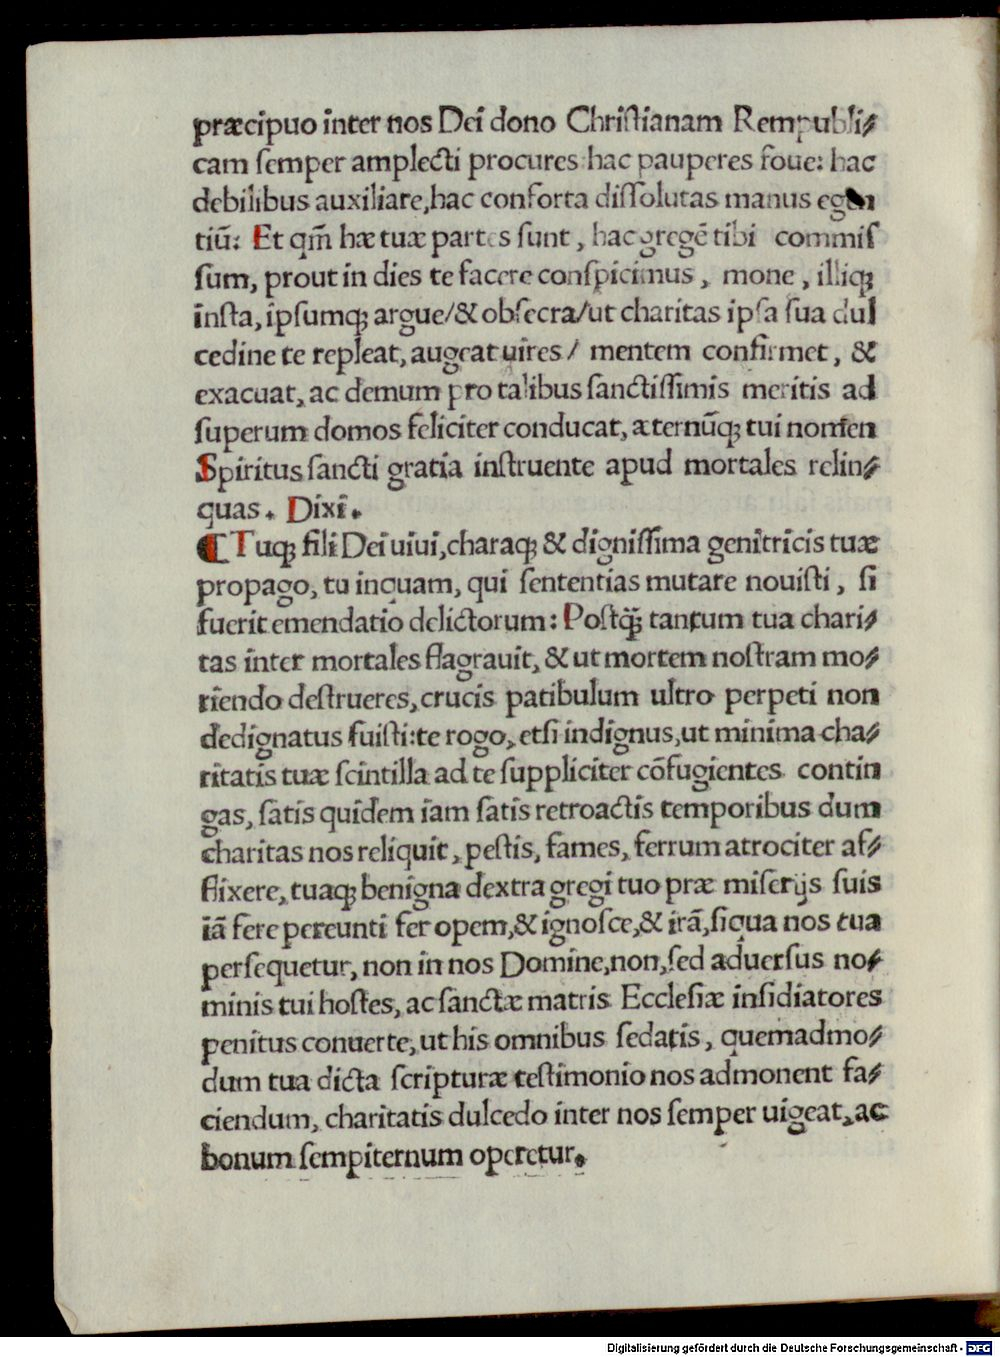 præcipuo inter nos Dei dono Christianam Rempubli⸗
cam semper amplecti procures hac pauperes foue: hac
debilibus auxiliare, hac conforta dissolutas manus egen
tiũ: Et qm̃ hæ tuæ partes sunt, hac gregẽ tibi commis
sum, prout in dies te facere conspicimus, mone, illiqꝫ
insta, ipsumqꝫ argue/ & obsecra/ ut charitas ipsa sua dul
cedine te repleat, augeat uires/ mentem confirmet, &
exacuat, ac demum pro talibus sanctissimis meritis ad
superum domos feliciter conducat, æternũqꝫ tui nomen
Spiritus sancti gratia instruente apud mortales relin⸗
quas. Dixi.
¶ Tuqꝫ fili Dei uiui, charaqꝫ & dignissima genitricis tuæ
propago, tu inquam, qui sententias mutare nouisti, si
fuerit emendatio delictorum: Postq̃ꝫ tantum tua chari⸗
tas inter mortales flagrauit, & ut mortem nostram mo⸗
riendo destrueres, crucis patibulum ultro perpeti non
dedignatus fuisti: te rogo, etsi indignus, ut minima cha⸗
ritatis tuæ scintilla ad te suppliciter cõfugientes contin
gas, satis quidem iam satis retroactis temporibus dum
charitas nos reliquit, pestis, fames, ferrum atrociter af⸗
flixere, tuaqꝫ benigna dextra gregi tuo præ miserijs suis
iã fere pereunti fer opem, & ignosce, & irã, siqua nos tua
persequetur, non in nos Domine, non, sed aduersus no⸗
minis tui hostes, ac sanctæ matris Ecclesiæ insidiatores
penitus conuerte, ut his omnibus sedatis, quemadmo⸗
dum tua dicta scripturæ testimonio nos admonent fa⸗
ciendum, charitatis dulcedo inter nos semper uigeat, ac
bonum sempiternum operetur.
Digitalisierung gefördert durch die Deutsche Forschungsgemeinschaft - DFG